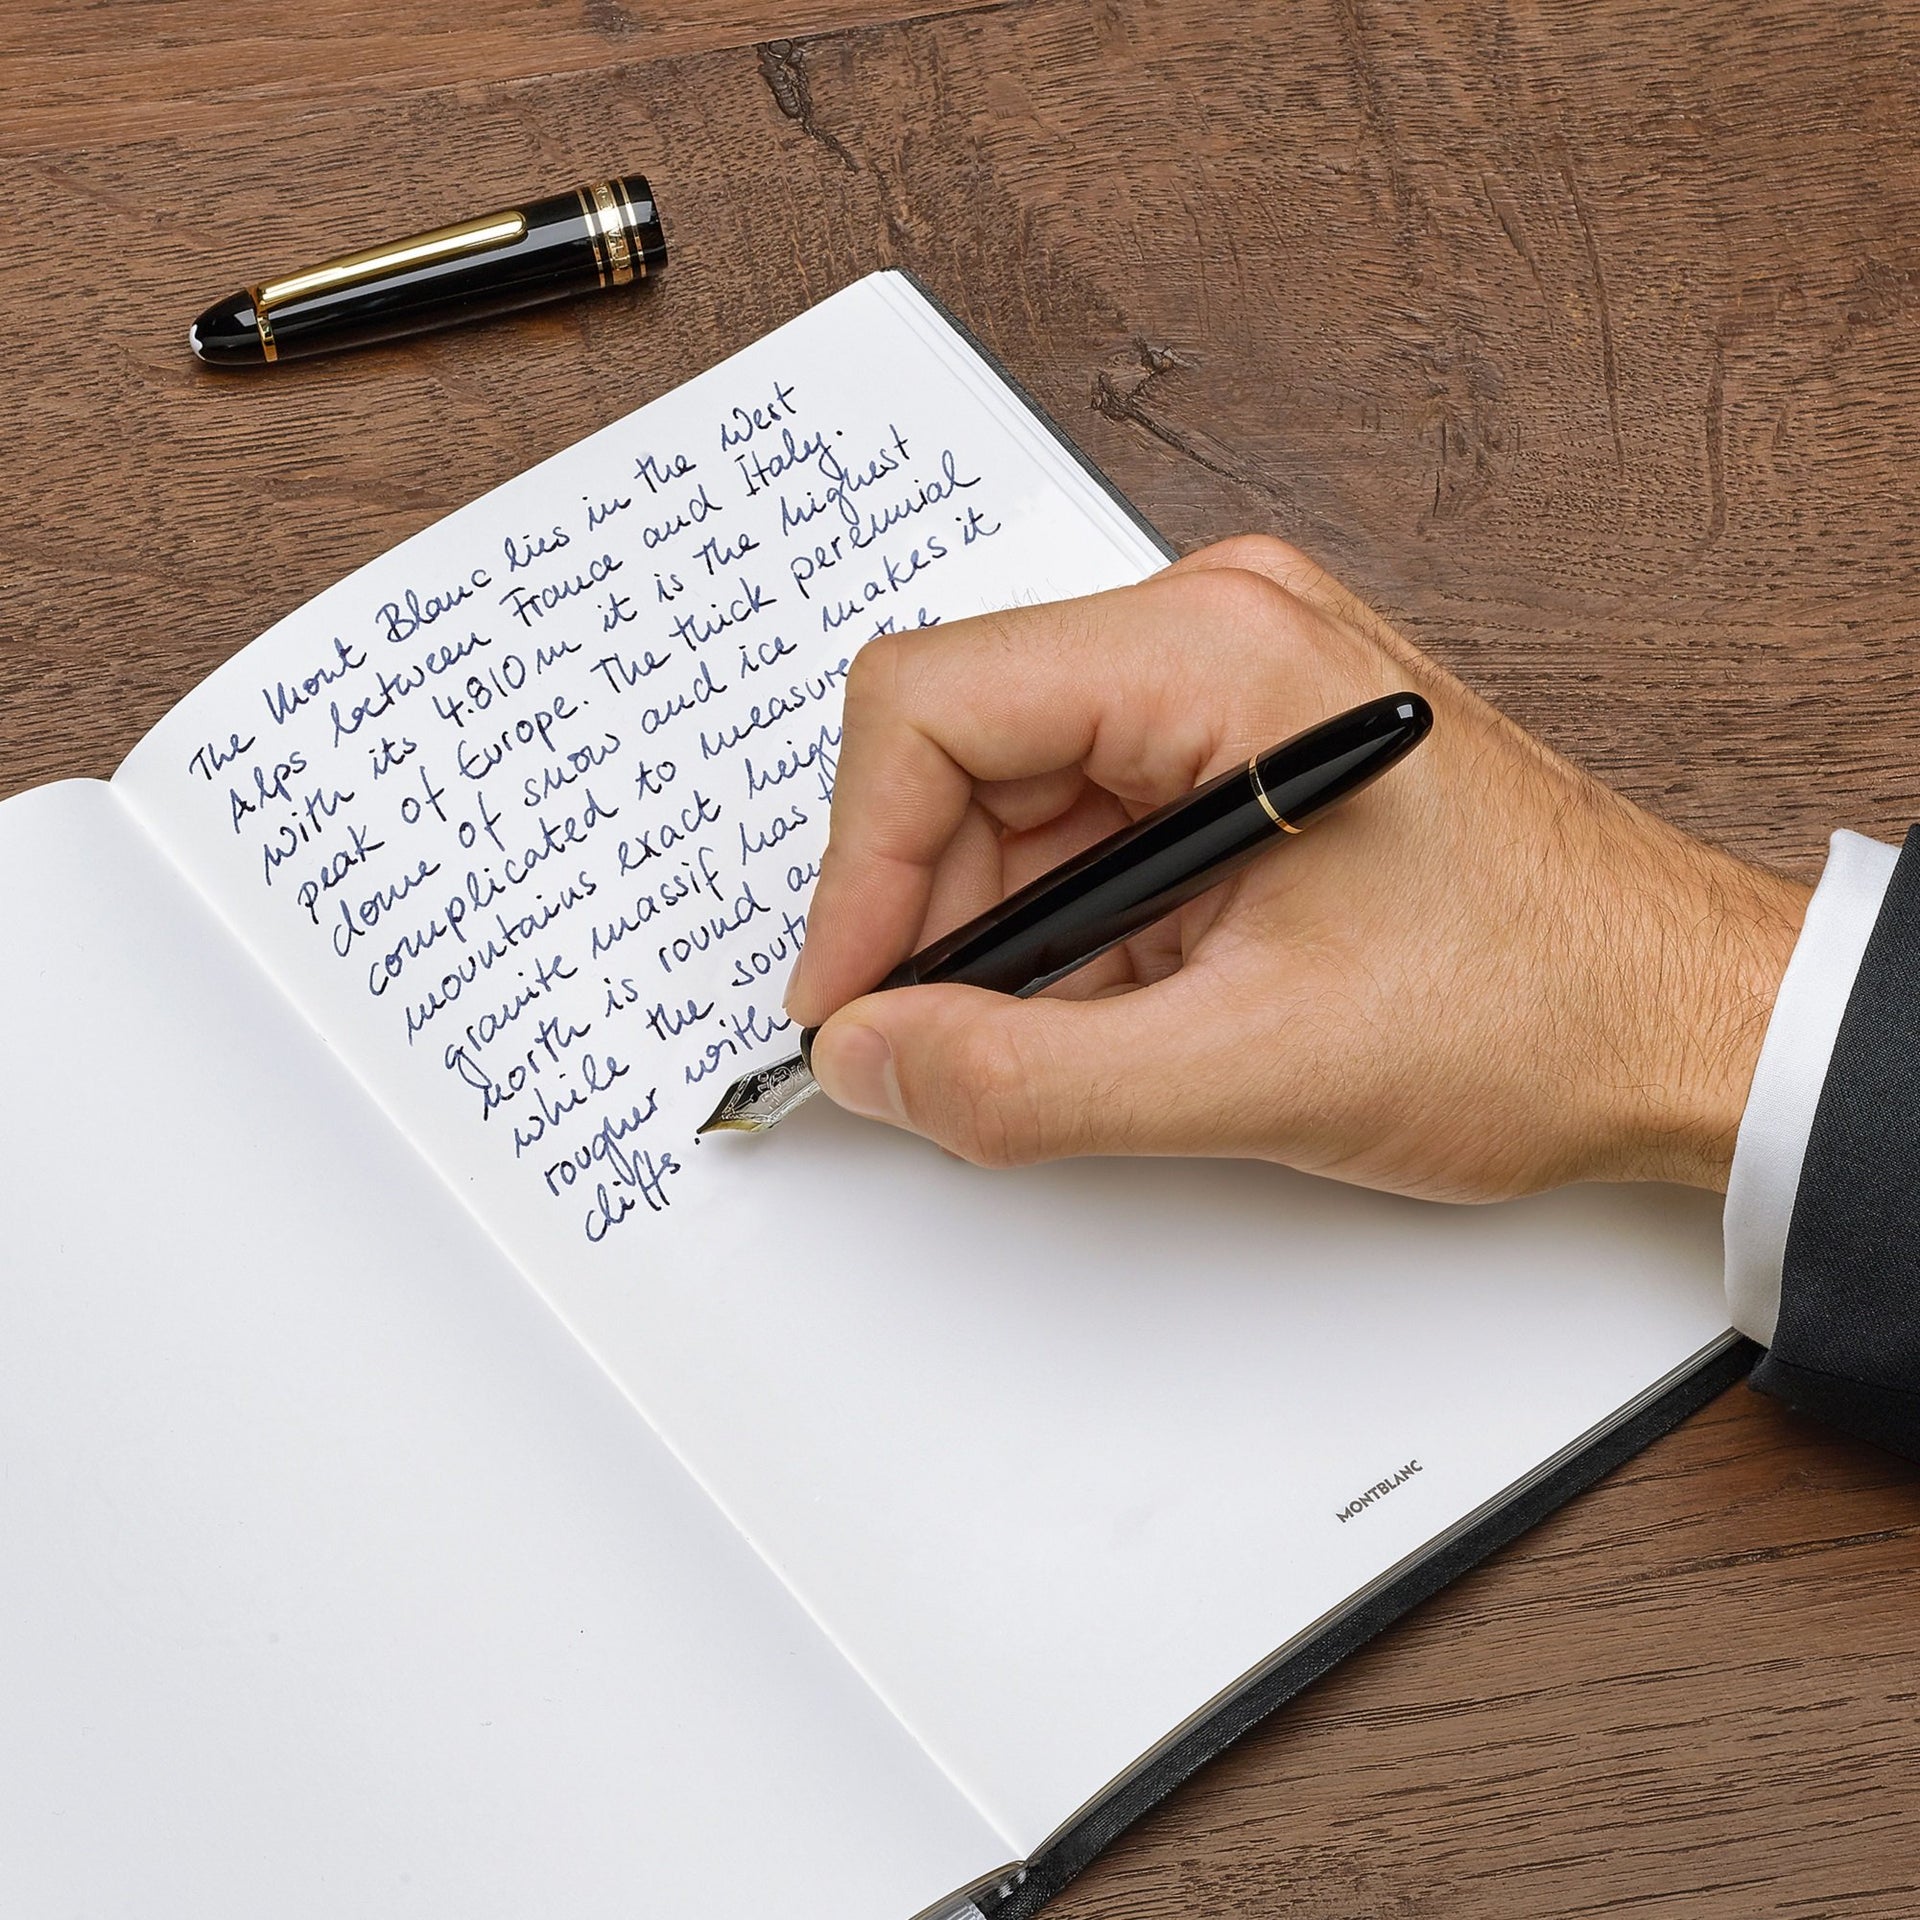 The Mont Blanc lies in the West
Alps between France and Italy.
With its 4.810 m it is the highest
peak of Europe. The thick perennial
dome of snow and ice makes it
complicated to measure the
mountains exact
granite massif has
north is round
while the
rougher with
cliffs.
MONTBLANC